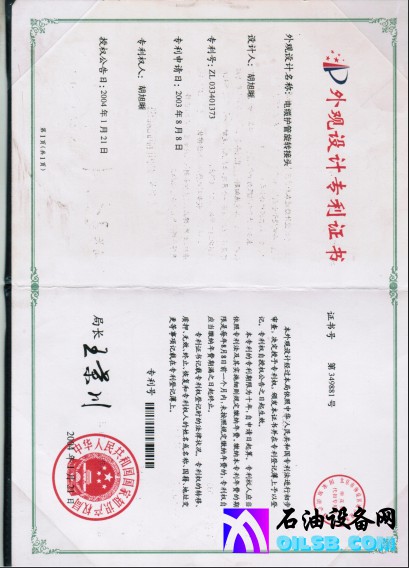 外观设计专利证书
外观设计名称：电缆护管旋转接头
设计人：胡旭晰
专利号：ZL 033401373
专利申请日：2003年8月8日
专利权人：胡旭晰
授权公告日：2004年1月21日
第1页(共1页)
证书号 第349881号
本外观设计经过本局依照中华人民共和国专利法进行初步
审查，决定授予专利权，颁发本证书并在专利登记簿上予以登
记。专利权自授权公告之日起生效。
本专利的专利权期限为十年，自申请日起算。专利权人应当
依照专利法及其实施细则规定缴纳年费。缴纳本专利年费的期
限是每年8月8日前一个月内。未按照规定缴纳年费的，专利权自
应当缴纳年费期满之日起终止。
专利证书记载专利权登记时的法律状况。专利权的转移、
质押、无效、终止、恢复和专利权人的姓名或名称、国籍、地址变
更等事项记载在专利登记簿上。
专利号
局长 王景川
中华人民共和国国家知识产权局
2004年1月21日
石油设备网
OILSB.COM